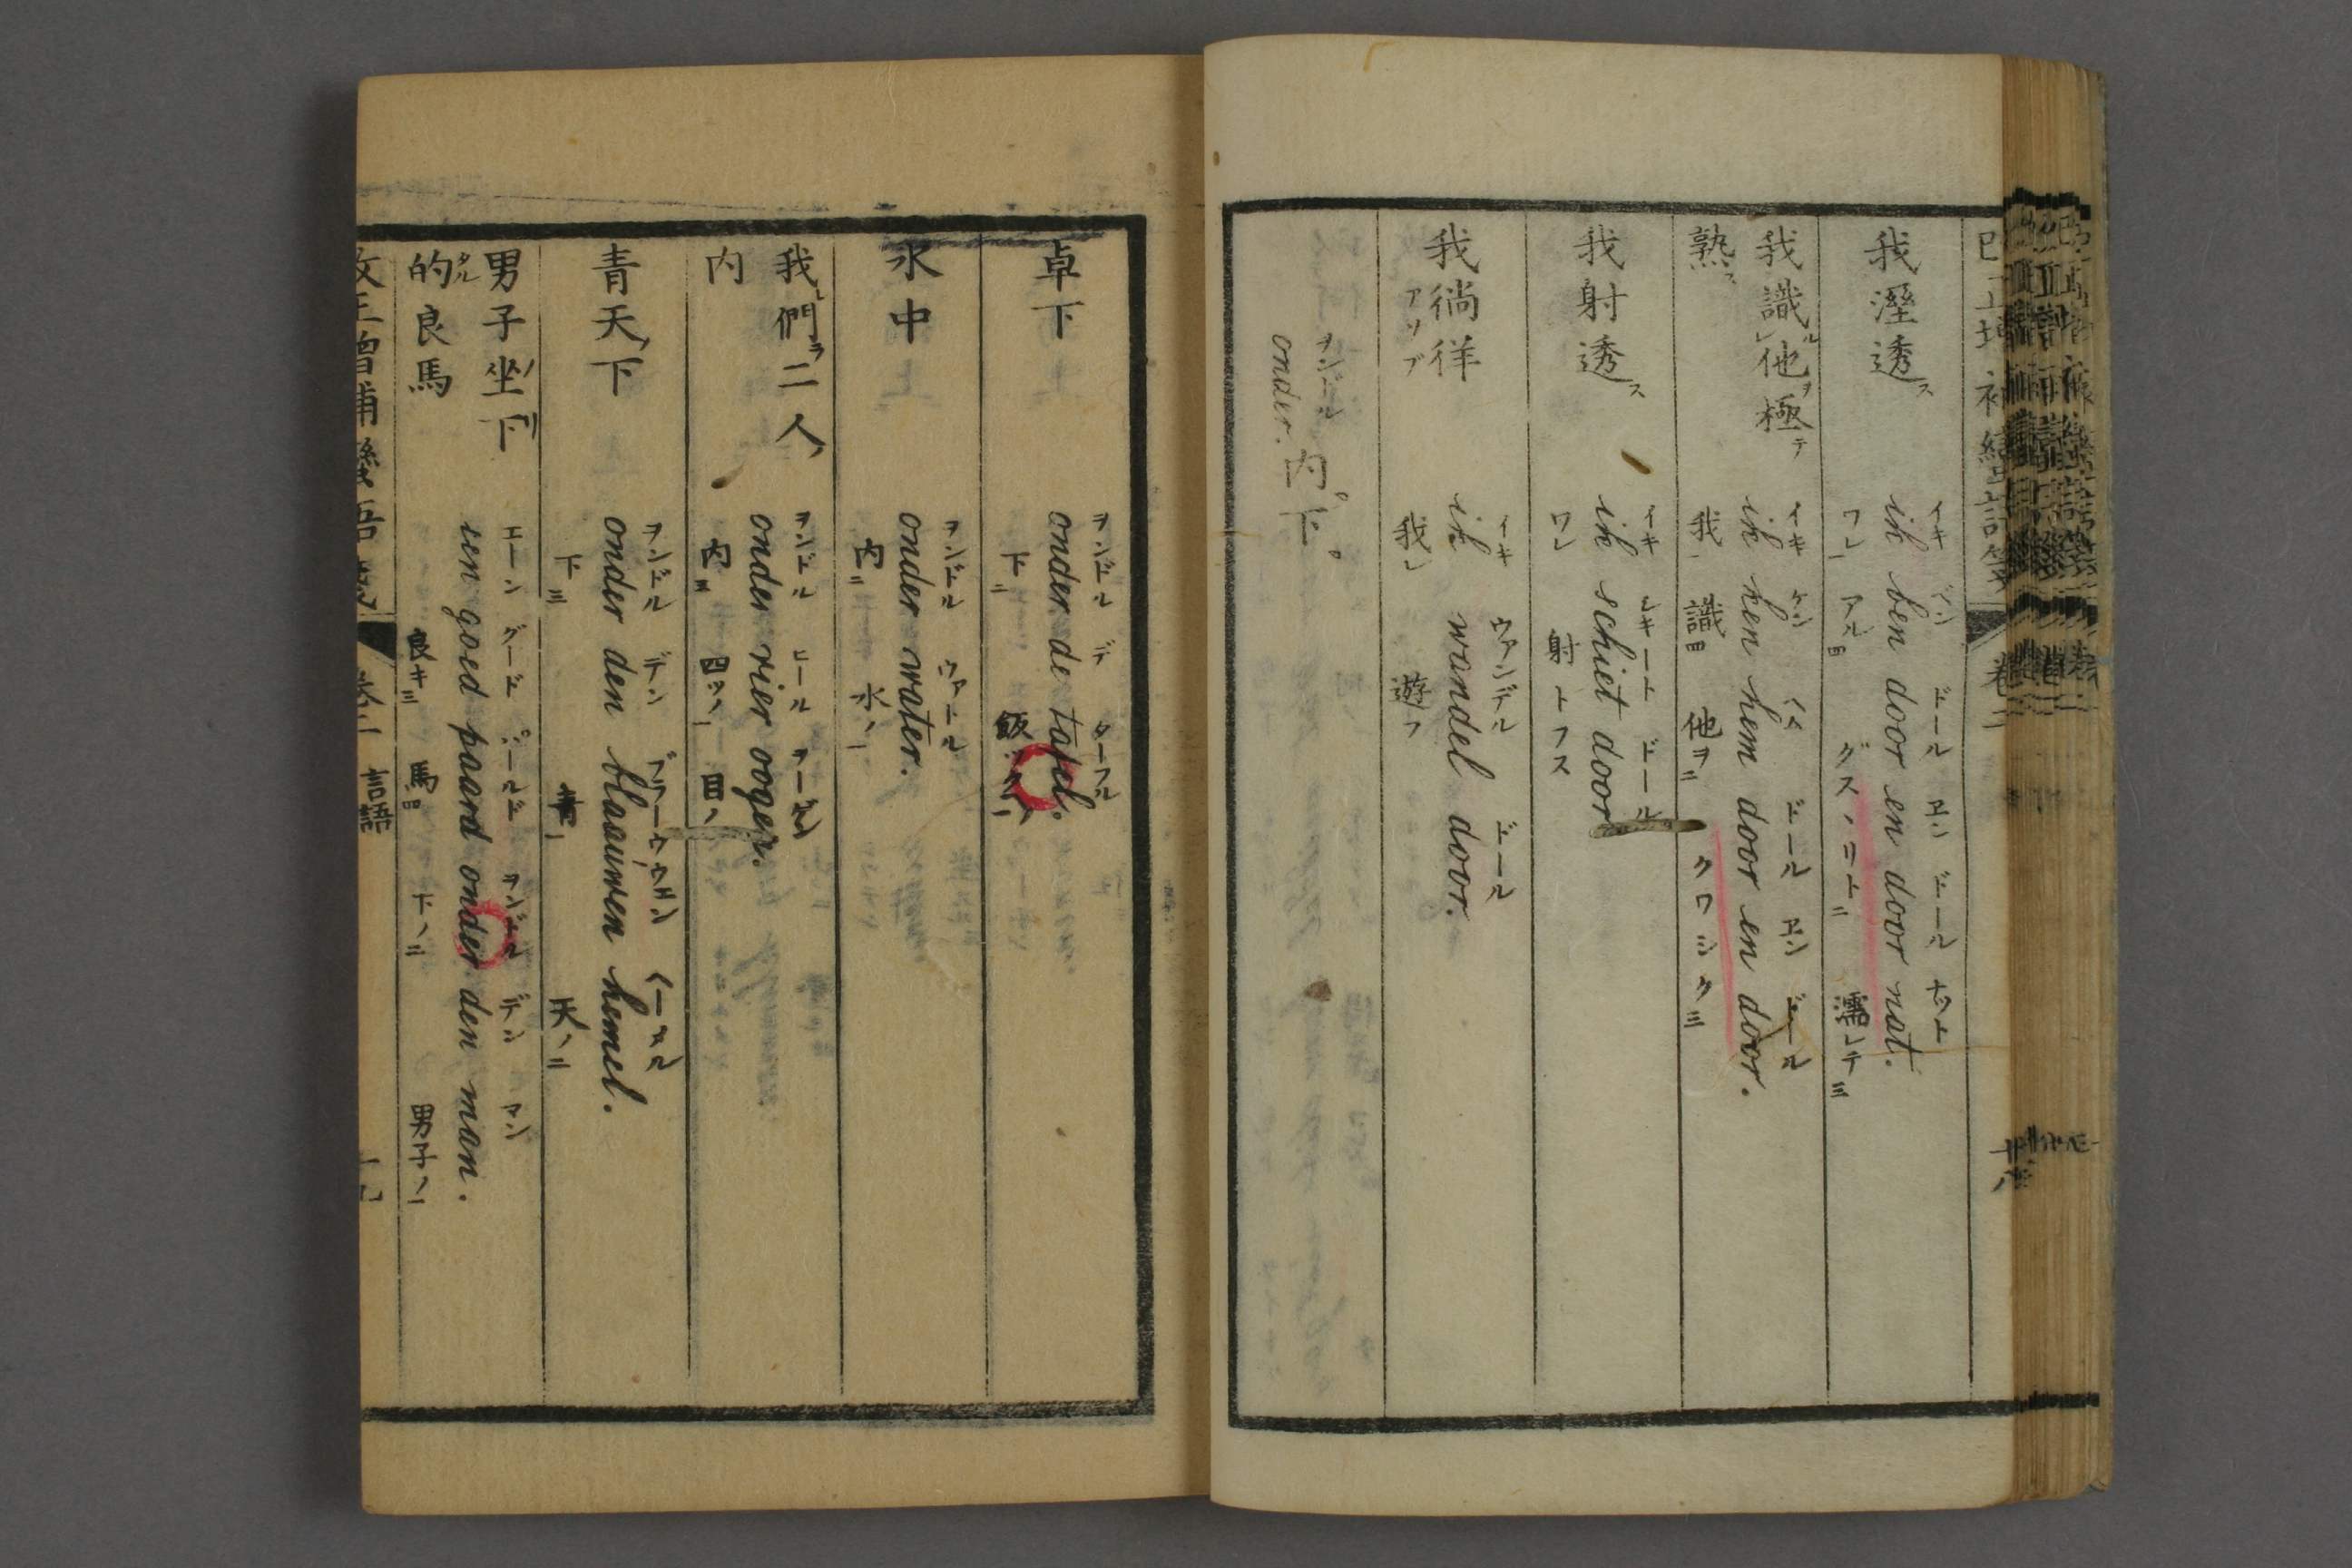 我溼透ス
イキ ベン ドール エン ドール ナット
ik ben door en door nat.
ワレ一 アル四 グスノリト二 濡レテ三
我識ル他ヲ極テ
熟ス
イキ ケン ヘム ドール エン ドール
ik ken hem door en door.
我一 識四 他ヲ二 クワシク三
我射透ス
イキ シキート ドール
ik schiet door
ワレ 射トフス
我徜徉
アソブ
イキ ワンデル ドール
ik wandel door.
我レ 遊フ
ヲンドル
onder. 内。下。
卓下
ヲンドル デ ターフル
onder de tafel.
下二
水中
ヲンドル ワートル
onder water.
内二 水ノ一
我們ラ二人
内
ヲンドル ヒール ヲーゲン
onder vier oogen.
内三 四ツノ一 目ノ
青天ノ下
ヲンドル デン ブラーウウエン ヘーメル
onder den blaauwen hemel.
下三 青一 天ノ二
男子ノ坐下リ
的タル良馬
エーン グード パールド ヲンドル デン マン
een goed paard onder den man.
良キ三 馬四 下ノ二 男子ノ一
改正増補蠻語箋 卷二 言語